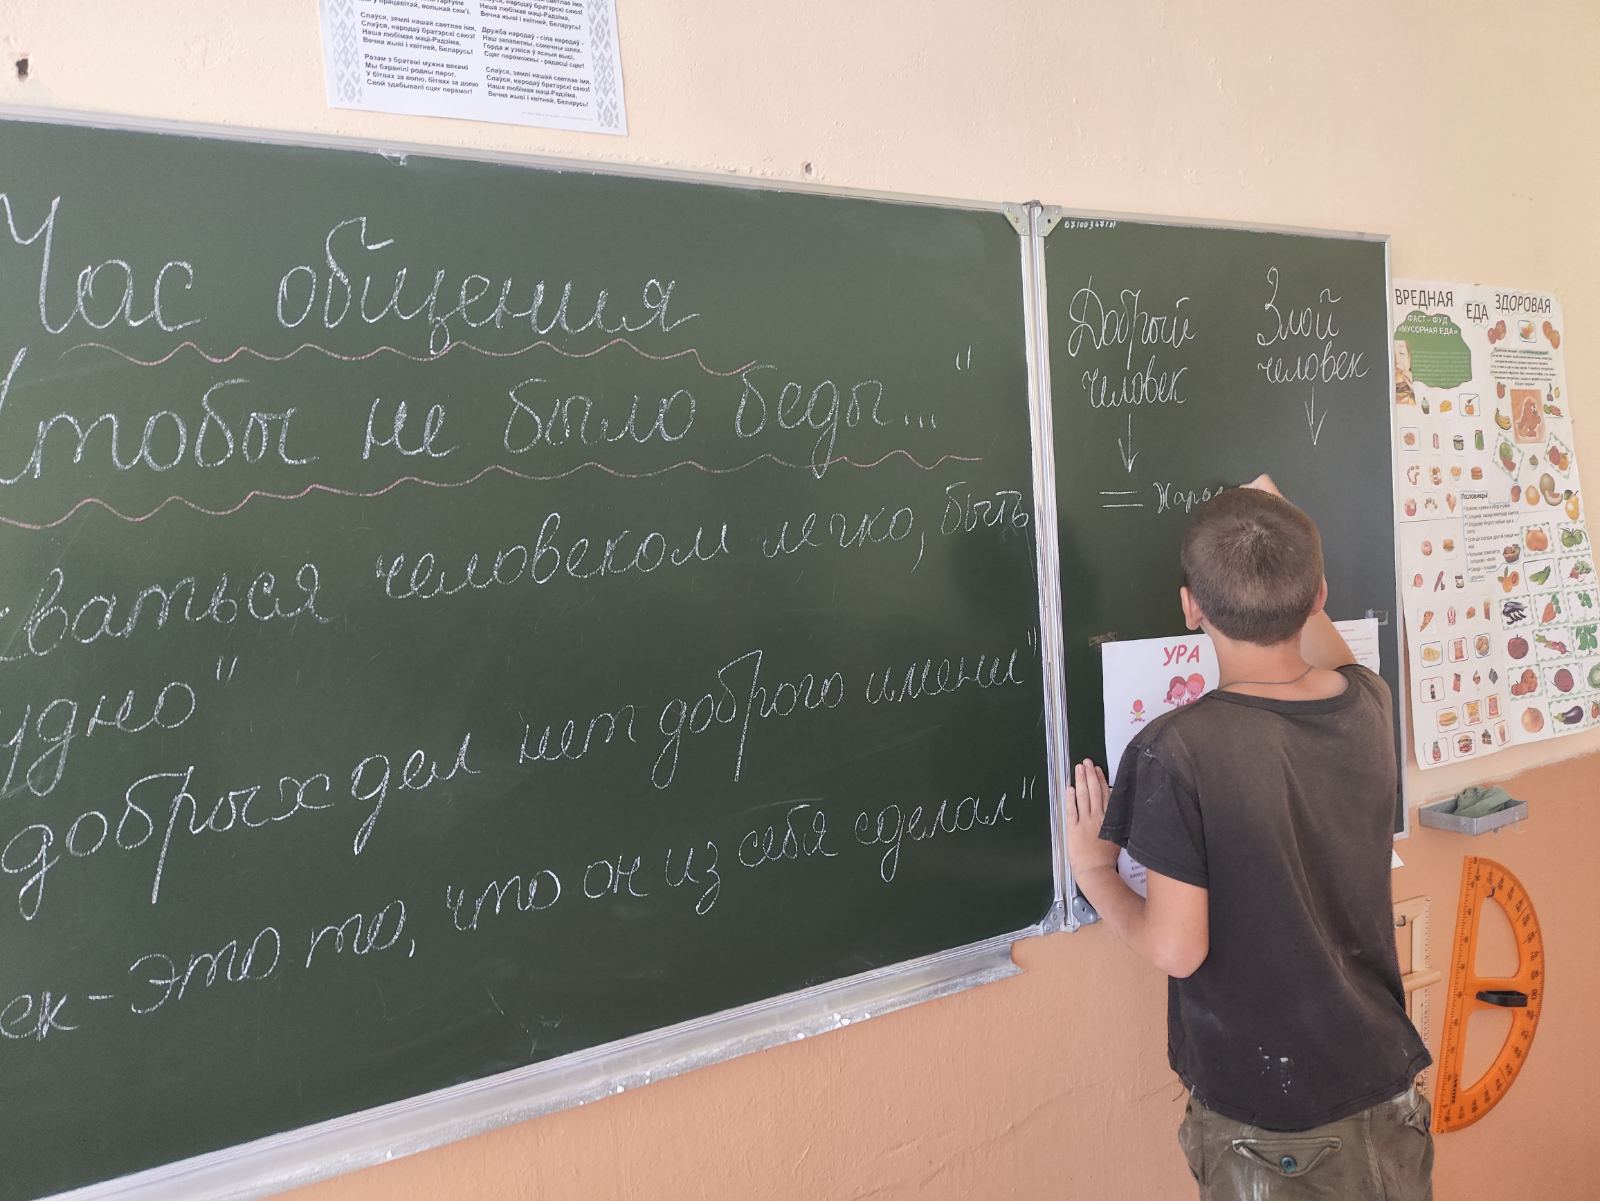 Слаўся, зямлі нашай светлае імя,
Слаўся, народаў братэрскі саюз!
Наша любімая маці-Радзіма,
Вечна жыві і квітней, Беларусь!
Разам з братамі мужна вякамі
Мы баранілі родны парог,
У бітвах за волю, бітвах за долю
Свой здабывалі сцяг перамог!
Наша любімая маці-Радзіма,
Вечна жыві і квітней, Беларусь!
Дружба народаў - сіла народаў -
Наш запаветны, сонечны шлях.
Горда ж узвіся ў ясныя высі,
Сцяг пераможны - радасці сцяг!
Слаўся, зямлі нашай светлае імя,
Слаўся, народаў братэрскі саюз!
Наша любімая маці-Радзіма,
Вечна жыві і квітней, Беларусь!
Час общения
Чтобы не было беды..."
ваться человеком легко, быть
удно"
добрых дел нет доброго имени"
ек - это то, что он из себя сделал"
Добрый
человек
=
Злой
человек
УРА
ВРЕДНАЯ ЕДА ЗДОРОВАЯ
ФАСТ - ФУД
«МУСОРНАЯ ЕДА»
Пословицы